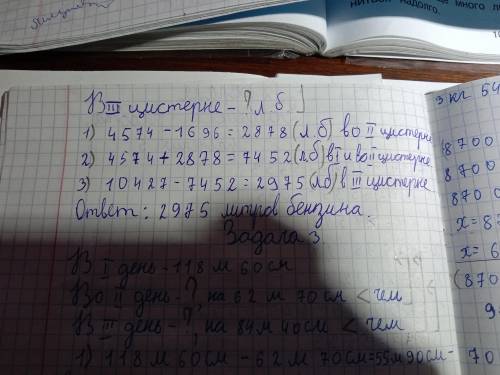 надолго.
В III цистерне - ? л б
1) 4574 - 1696 = 2878 (л.б) во II цистерне
2) 4574 + 2878 = 7452 (л.б) в I и во II цистерне
3) 10427 - 7452 = 2975 (л.б) в III цистерне
Ответ: 2975 литров бензина.
Задача 3
В I день - 118 м 60 см
Во II день - ?, на 62 м 70 см < чем
В III день - ?, на 84 м 40 см < чем
1) 118 м 60 см - 62 м 70 см = 55 м 90 см -
3 кг 54
8700
8700
870
x = 8
x = 6
(870
9
70